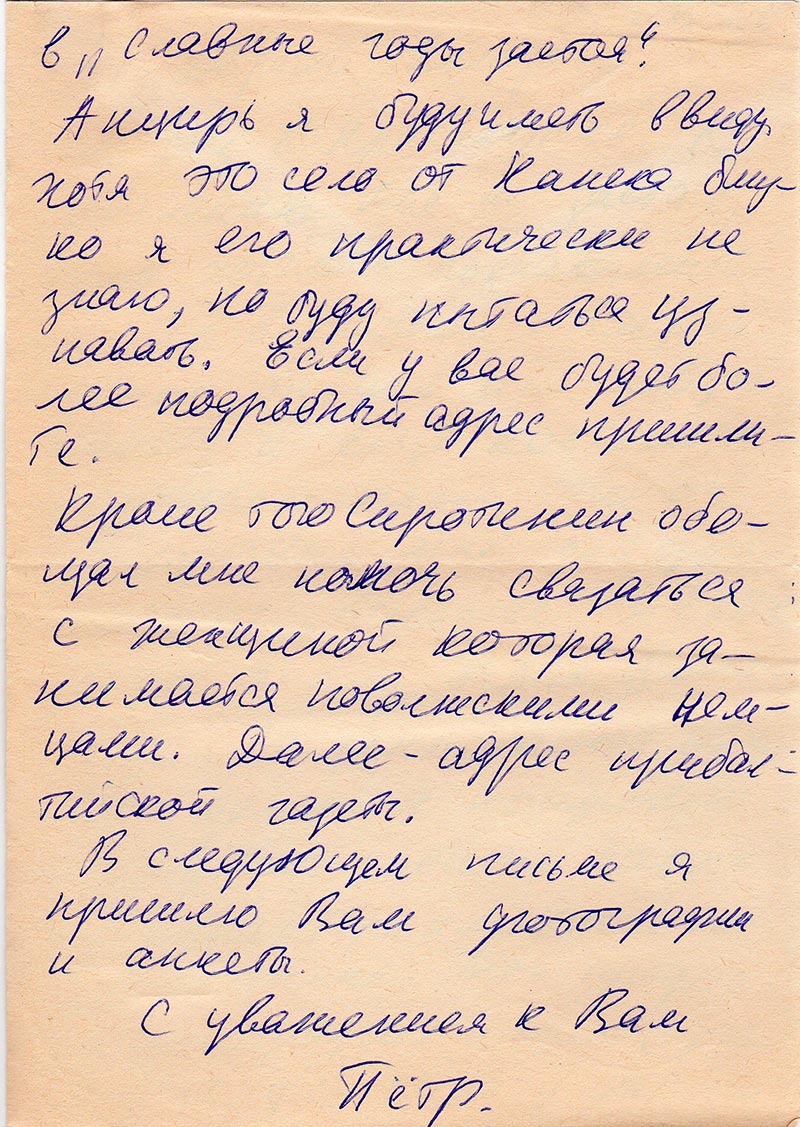 в „славные годы застоя“.
Анцирь я буду иметь ввиду,
хотя это село от Канска близ-
ко я его практически не
знаю, но буду пытаться уз-
навать. Если у вас будет бо-
лее подробный адрес пришли-
те.
Кроме того Сиротинин обе-
щал мне помочь связаться
с женщиной которая за-
нимается поволжскими нем-
цами. Далее - адрес прибал-
тийской газеты.
В следующем письме я
пришлю Вам фотографии
и анкеты.
С уважением к Вам
Пётр.